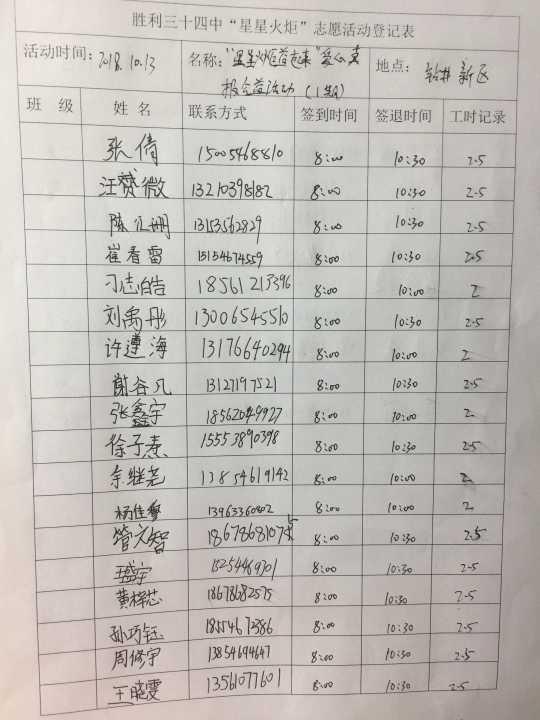 胜利三十四中“星星火炬”志愿活动登记表
活动时间：2018.10.13 名称：“星星火炬益起来”爱心 地点：钻井新区
报公益活动
班 级 姓 名 联系方式 签到时间 签退时间 工时记录
张倩 15005468810 8:00 10:30 2.5
汪赟微 13210398182 8:00 10:30 2.5
陈 13153562829 8:00 10:30 2.5
崔春雷 15154674559 8:00 10:30 2.5
刁志皓 18561213396 8:00 10:00 2
刘禹彤 13006545510 8:00 10:30 2.5
许遵海 13176640294 8:00 10:00 2
谢谷凡 13127197521 8:00 10:30 2.5
张鑫宇 18562049927 8:00 10:00 2
徐子 15553890398 8:00 10:30 2.5
佘继尧 13854619142 8:00 10:00 2
杨佳 13963360802 8:00 10:00 2
管文智 8:00 10:30 2.5
王盛宇 15254469301 8:00 10:30 2.5
黄梓芯 18678682575 8:00 10:30 2.5
孙巧钰 18554672386 8:00 10:30 2.5
周修宇 13854694647 8:00 10:30 2.5
王晓雯 13561077601 8:00 10:30 2.5